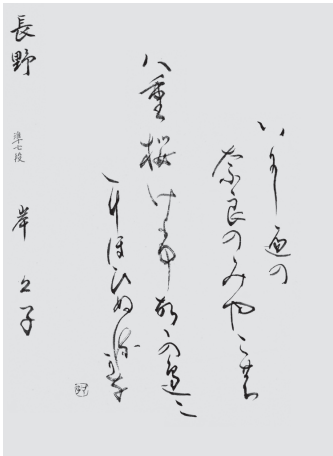 いにし遍の
奈良のみやこの
八重桜けふこゝの遍に
にほひぬるかな
長野 準七段 岸 久子